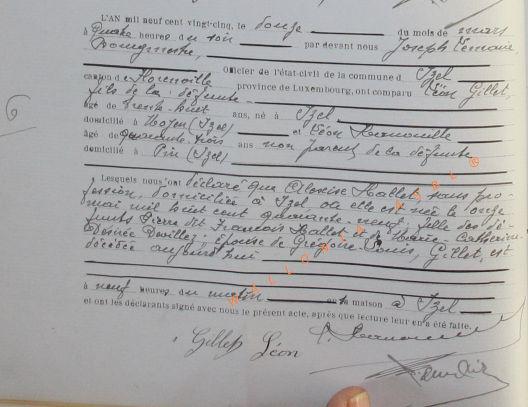 L'AN mil neuf cent vingt-cinq, le douze du mois de mars
à quatre heures du soir par devant nous Joseph Lemaire
Bourgmestre,
Officier de l'état-civil de la commune d Izel
canton de Florenville province de Luxembourg, ont comparu Léon Gillet,
fils de la défunte
âgé de trente huit ans, né à Izel
domicilié à Moyen (Izel) et Léon
âgé de quarante trois ans non parent de la défunte
domicilié à Pin (Izel)
Lesquels nous ont déclaré que Aloïse Hallet sans pro-
fession, domiciliée à Izel, où elle est née le onze
mai mil huit cent quarante-neuf, fille des dé-
funts Pierre dit François Hallet et de Marie-Catherine
Désirée épouse de Grégoire-Louis, Gillet, est
décédée aujourd'hui
à neuf heures du matin en sa maison à Izel
et ont les déclarants signé avec nous le présent acte, après que lecture leur en a été faite.
Gillet Léon
6